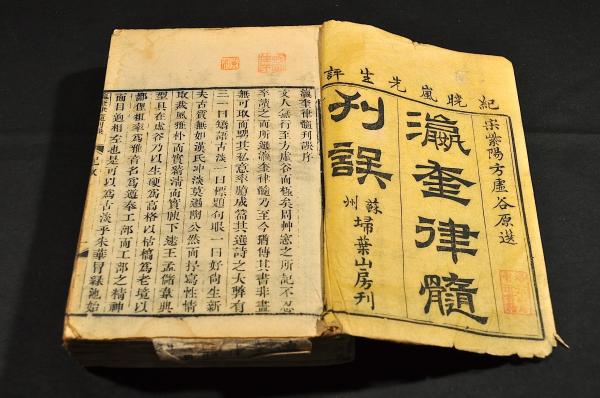 紀曉嵐先生評
宋紫陽方虛谷原選
瀛奎律髓
刊誤
蘇州
埽葉山房刊
瀛奎律髓刊誤序
文人無行至方虛谷而極矣周草窓之所記不忍
卒讀之而所選瀛奎律髓乃至今猶傳其書非盡
無可取而騁其私意率臆成篇其選詩之大弊有
三一曰矯語古淡一曰標題句眼一曰好尚生新
夫古質無如漢氏冲淡莫過陶公然而抒寫性情
取裁風雅朴而實綺清而實腴下逮王孟儲韋典
型具在虛谷乃以生硬爲高格以枯槁爲老境以
鄙俚粗率爲雅音名爲遵奉工部而工部之精神
面目迥相左也是可以爲古淡乎朱華冒綠池始